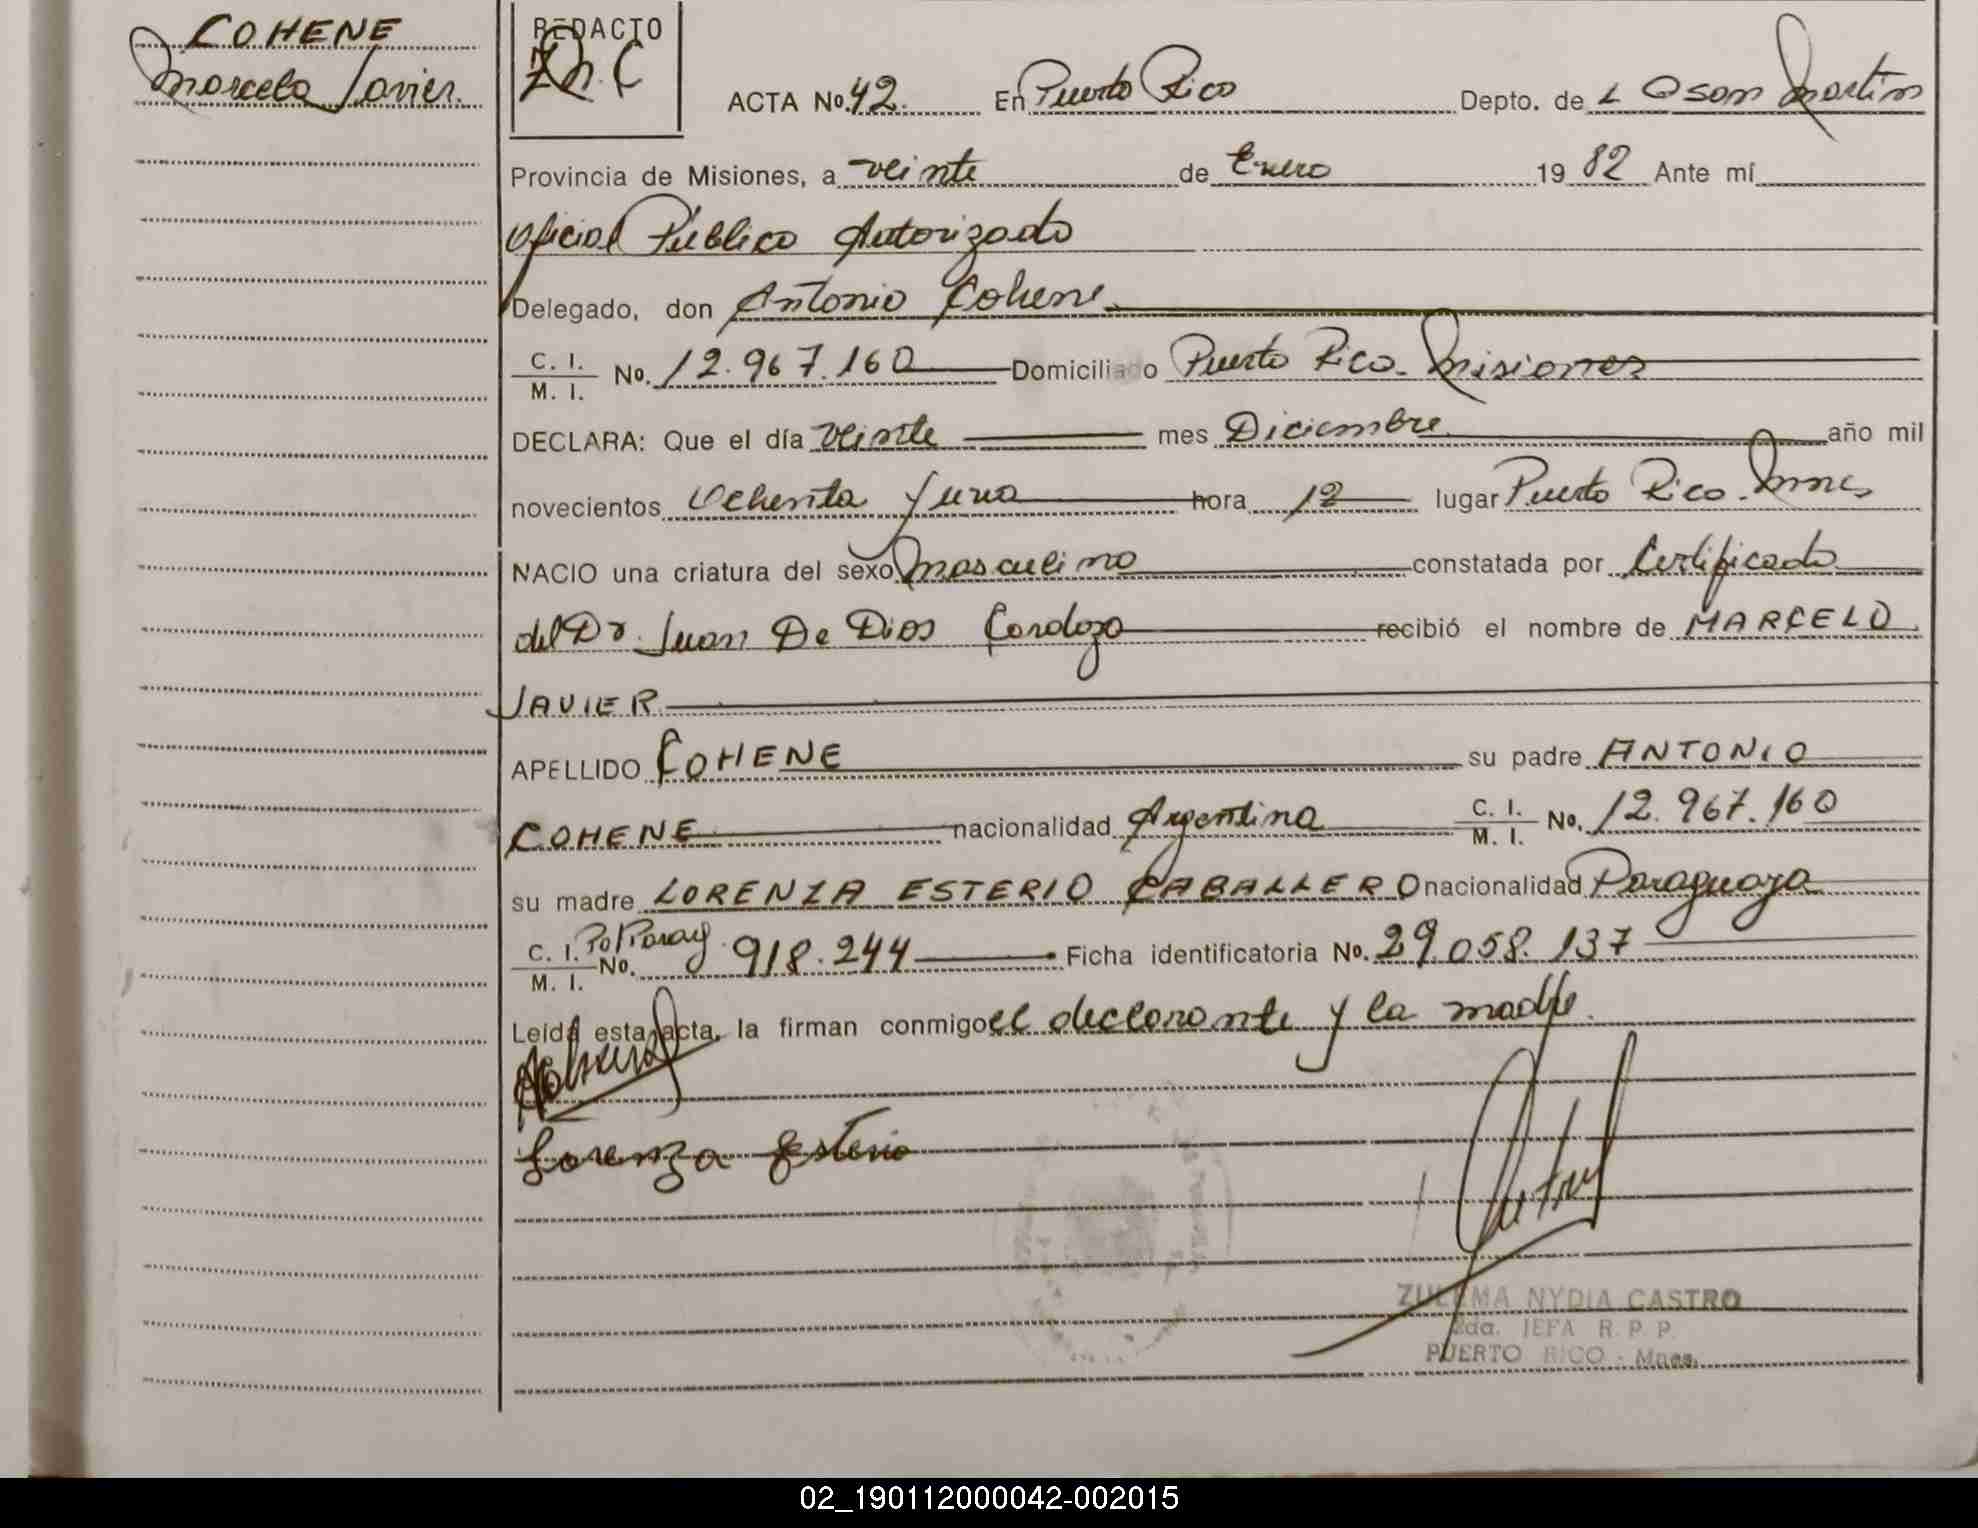 COHENE
Marcelo Javier.
REDACTO
Z.N.C
ACTA No. 42. En Puerto Rico Depto. de L Gsan Martin
Provincia de Misiones, a veinte de Enero 19 82 Ante mí
Oficial Público Autorizado
Delegado, don Antonio Cohene
C. I.
M. I. No. 12.967.160 Domiciliado Puerto Rico. Misiones
DECLARA: Que el día veinte mes Diciembre año mil
novecientos Ochenta y uno hora 12 lugar Puerto Rico. Mnes
NACIO una criatura del sexo masculino constatada por Certificado
del Dr. Juan De Dios Cardozo recibió el nombre de MARCELO
JAVIER
APELLIDO COHENE su padre ANTONIO
COHENE nacionalidad Argentina C. I.
M. I. No. 12.967.160
su madre LORENZA ESTERIO CABALLERO nacionalidad Paraguaya
C. I. Pol Paray
M. I. No. 918.244 Ficha identificatoria No. 29.058.137
Leída esta acta, la firman conmigo el declarante y la madre.
Lorenza Esterio
ZULEMA NYDIA CASTRO
2da. JEFA R. P. P.
PUERTO RICO - Mnes.
02_190112000042-002015